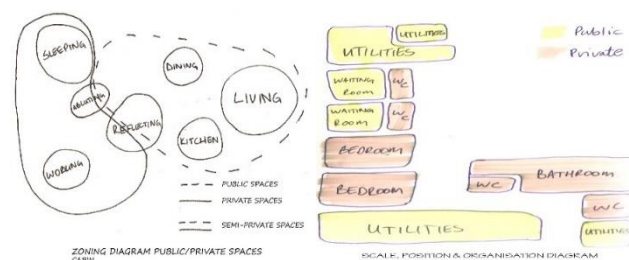 SLEEPING
ABLUTING
REFLECTING
WORKING
DINING
KITCHEN
LIVING
PUBLIC SPACES
PRIVATE SPACES
SEMI-PRIVATE SPACES
ZONING DIAGRAM PUBLIC/PRIVATE SPACES
CABIN
UTILITIES
UTILITIES
WAITING
ROOM
WC
WAITING
ROOM
WC
BEDROOM
BEDROOM
UTILITIES
Public
Private
BATHROOM
WC
WC
UTILITIES
SCALE, POSITION & ORGANISATION DIAGRAM